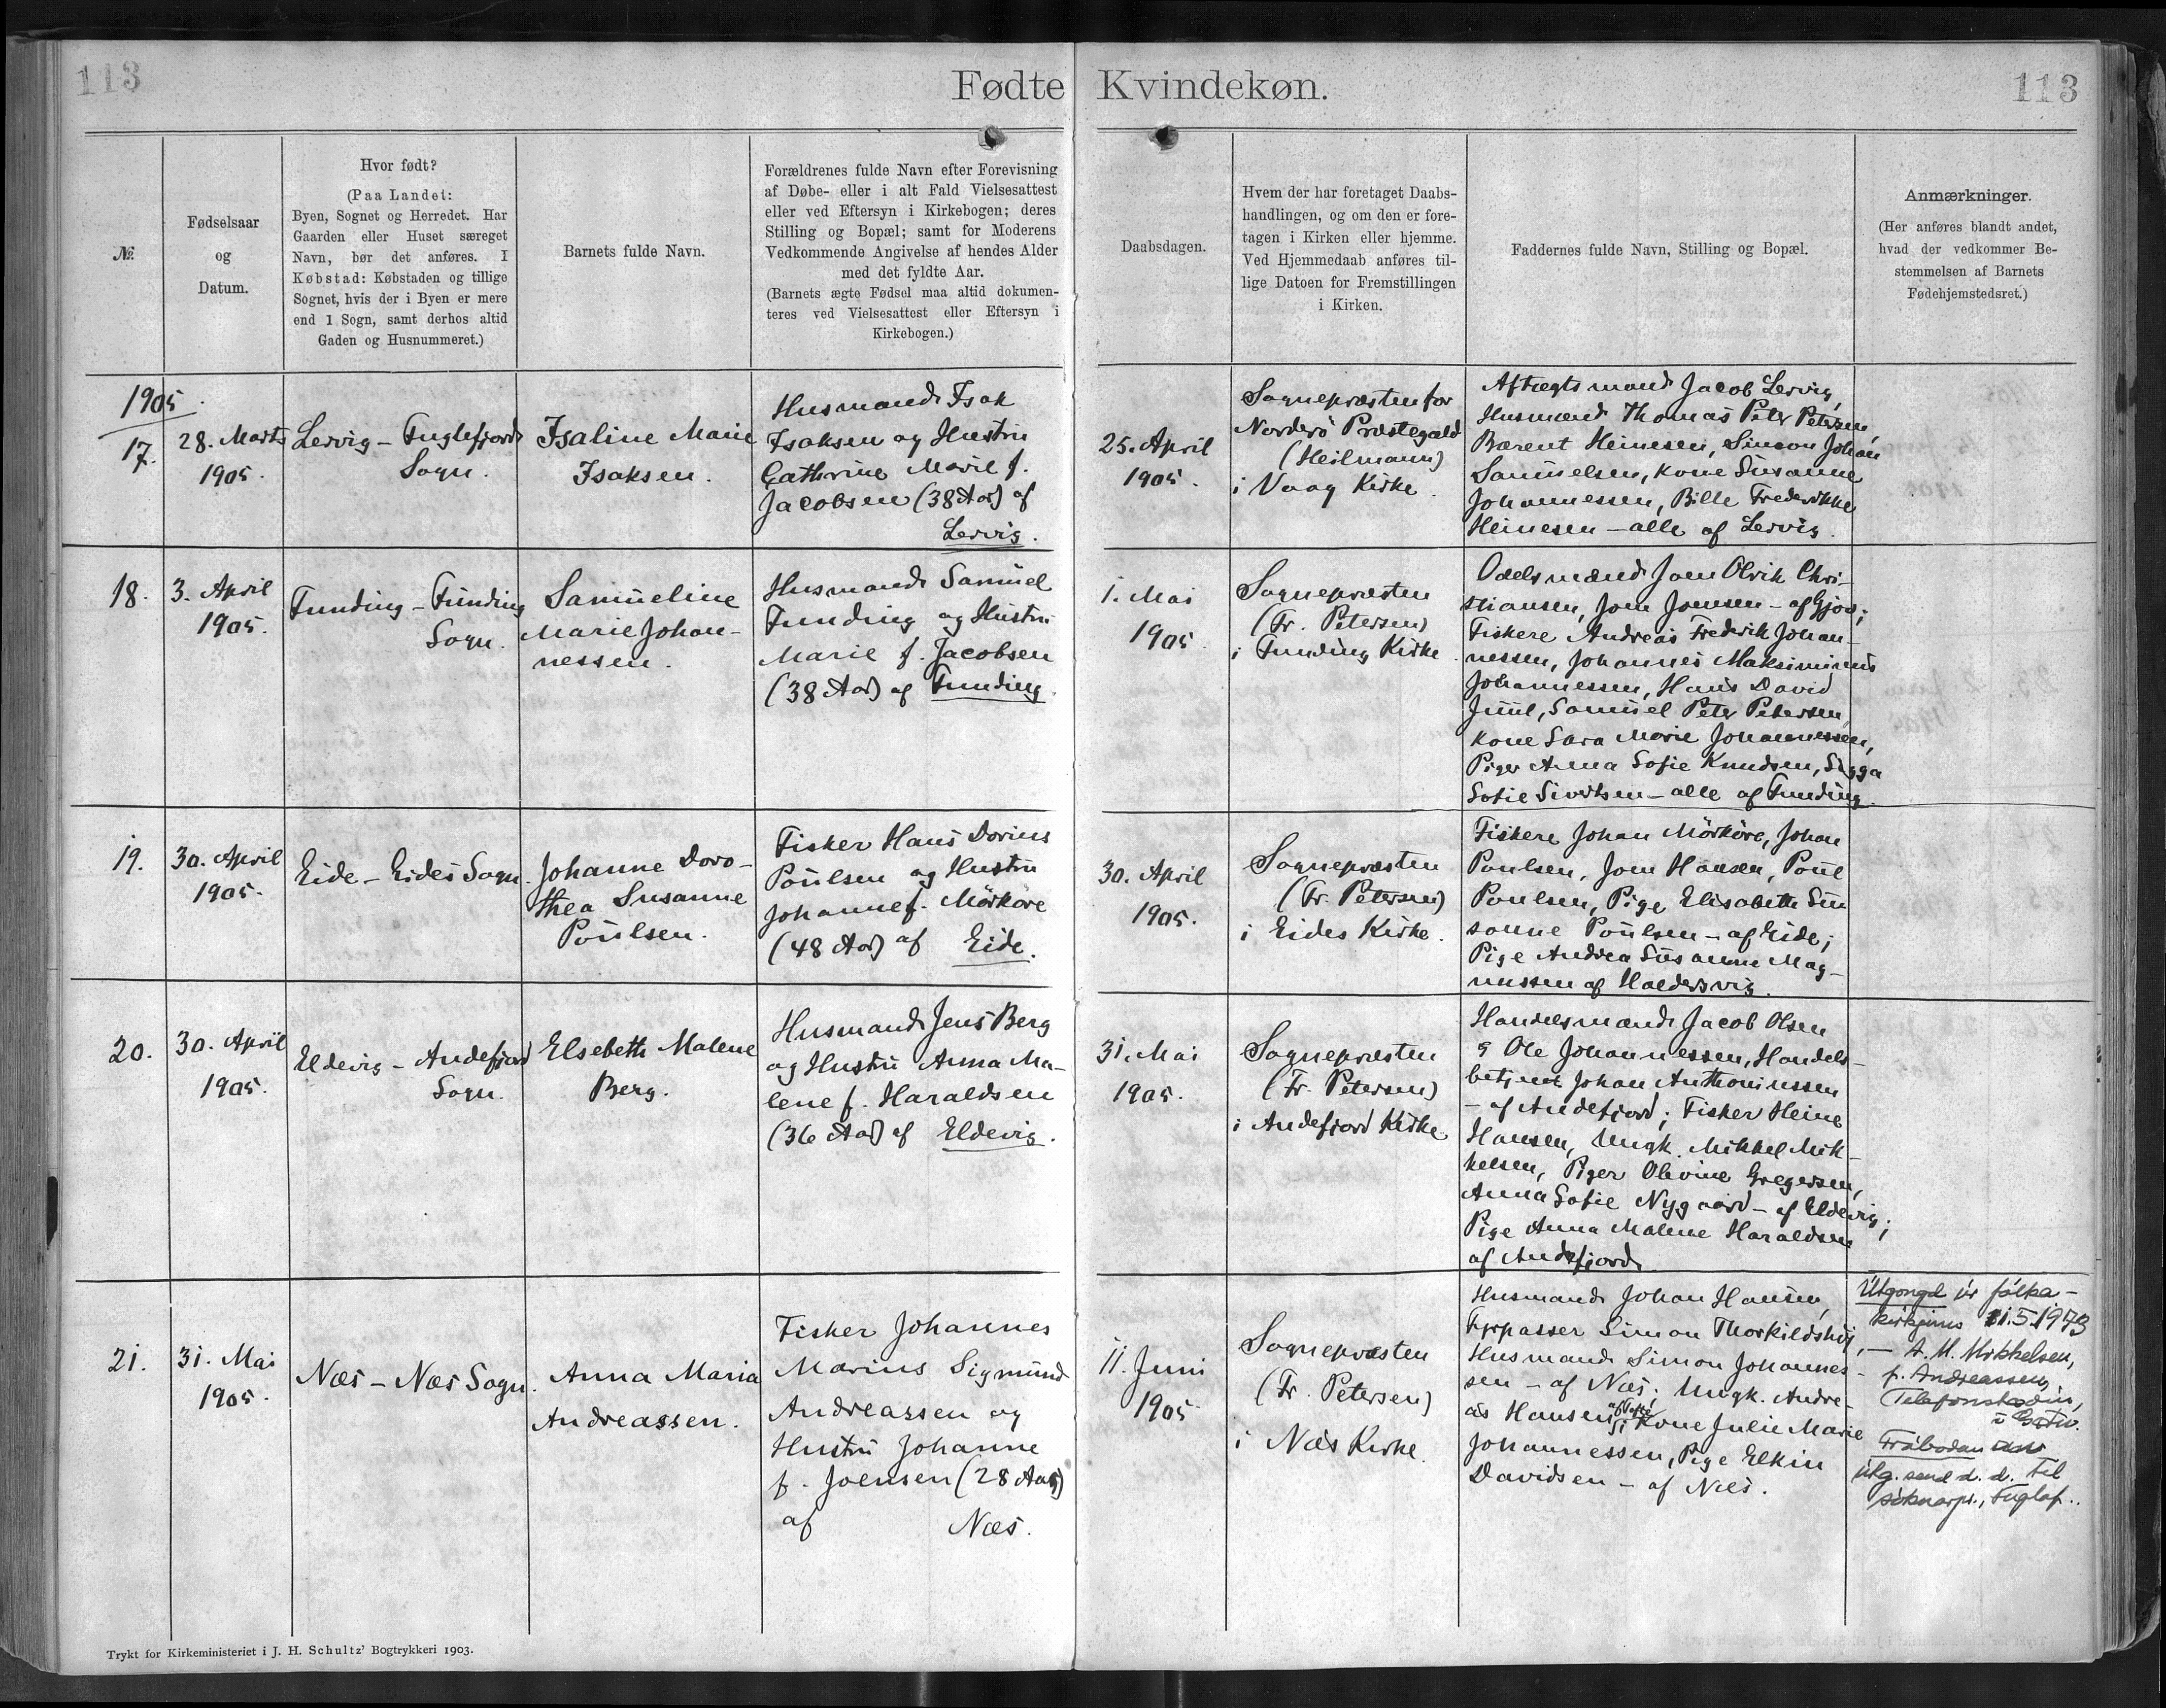 113
Fødte
Kvindekøn.
113
№
Fødselsaar
og
Datum.
Hvor født?
(Paa Landet:
Byen, Sognet og Herredet. Har
Gaarden eller Huset særeget
Navn, bør det anføres. I
Købstad: Købstaden og tillige
Sognet, hvis der i Byen er mere
end 1 Sogn, samt derhos altid
Gaden og Husnummeret.)
Barnets fulde Navn.
Forældrenes fulde Navn efter Forevisning
af Døbe- eller i alt Fald Vielsesattest
eller ved Eftersyn i Kirkebogen; deres
Stilling og Bopæl; samt for Moderens
Vedkommende Angivelse af hendes Alder
med det fyldte Aar.
(Barnets ægte Fødsel maa altid dokumen-
teres ved Vielsesattest eller Eftersyn i
Kirkebogen.)
Daabsdagen.
Hvem der har foretaget Daabs-
handlingen, og om den er fore-
tagen i Kirken eller hjemme.
Ved Hjemmedaab anføres til-
lige Datoen for Fremstillingen
i Kirken.
Faddernes fulde Navn, Stilling og Bopæl.
Anmærkninger.
(Her anføres blandt andet,
hvad der vedkommer Be-
stemmelsen af Barnets
Fødehjemstedsret.)
1905
17.
28. Marts
1905.
Lervig - Fuglefjord
Sogn.
Isaline Marie
Isaksen.
Husmand Isak
Isaksen og Hustru
Cathrine Marie f.
Jacobsen (38 Aar) af
Lervig.
25. April
1905.
Sognepræsten for
Norderö Præstegæld
(Heilmann)
i Vaag Kirke.
Aftægtsmand Jacob Lervig,
Husmænd Thomas Peter Petersen,
Bærent Heinesen, Simon Johan
Samuelsen, Kone Susanne
Johannessen, Bille Frederikke
Heinesen - alle af Lervig.
18.
3. April
1905.
Funding - Funding
Sogn.
Samueline
Marie Johan-
nessen.
Husmand Samuel
Funding og Hustru
Marie f. Jacobsen
(38 Aar) af Funding.
1. Mai
1905.
Sognepræsten
(Fr. Petersen)
i Funding Kirke.
Odelsmænd Joen Olrik Chri-
stiansen, Joen Joensen - af Gjov;
Fiskere Andreas Frederik Johan-
nessen, Johannes Maksiminus
Johannessen, Hans David
Juul, Samuel Peter Petersen,
Kone Sara Marie Johannessen,
Piger Anna Sofie Knudsen, Sigga
Sofie Sivertsen - alle af Funding.
19.
30. April
1905.
Eide - Eides Sogn.
Johanne Doro-
thea Susanne
Poulsen.
Fisker Hans Dorius
Poulsen og Hustru
Johanne f. Mörköre
(48 Aar) af Eide.
30. April
1905.
Sognepræsten
(Fr. Petersen)
i Eides Kirke.
Fiskere Johan Mörköre, Johan
Poulsen, Joen Hansen, Poul
Poulsen, Pige Elisabeth Su-
sanne Poulsen - af Eide;
Pige Andrea Susanne Mag-
nussen af Haldersvig.
20.
30. April
1905.
Eldevig - Andefjord
Sogn.
Elsebeth Malene
Berg.
Husmand Jens Berg
og Hustru Anna Ma-
lene f. Haraldsen
(36 Aar) af Eldevig.
31. Mai
1905.
Sognepræsten
(Fr. Petersen)
i Andefjord Kirke
Handelsmænd Jacob Olsen
& Ole Johannessen, Handels-
betjent Johan Anthoniussen
- af Andefjord; Fisker Heine
Hansen, Ungk. Mikkel Mik-
kelsen, Piger Olevine Gregersen,
Anna Sofie Nygaard - af Eldevig;
Pige Anna Malene Haraldsen
af Andefjord.
21.
31. Mai
1905.
Næs - Næs Sogn.
Anna Maria
Andreassen.
Fisker Johannes
Marius Sigmund
Andreassen og
Hustru Johanne
f. Joensen (28 Aar)
af Næs.
11. Juni
1905
Sognepræsten
(Fr. Petersen)
i Næs Kirke.
Husmand Johan Hansen,
Fyrpasser Simon Thorkildshøj,
Husmand Simon Johannes-
sen - af Næs; Ungk. Andre-
as Hansen Kone Julie Marie
Johannessen, Pige Elkin
Davidsen - af Næs.
Útgongd úr fólka-
kirkjuni 5.1973
- A. M. Mikkelsen,
f. Andreassen,
Telefonstødin,
Fráboðan
útg. send d. d. til
sóknarpr., Fuglaf..
Trykt for Kirkeministeriet i J. H. Schultz' Bogtrykkeri 1903.